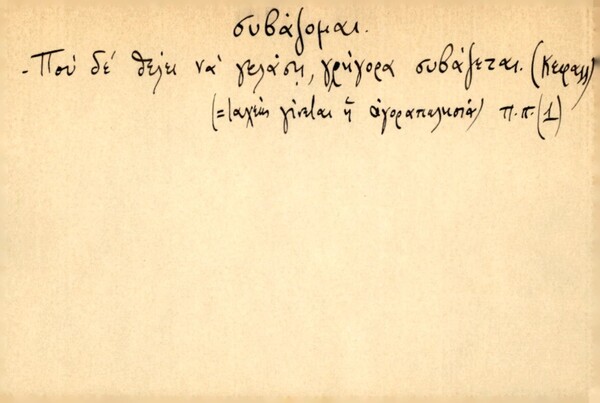 συβάζομαι.
- Ποὺ δὲ θέλει νὰ γελάσῃ, γρήγορα συβάζεται. (Κεφαλ)
(= ταχέως γίνεται ἡ ἀγοραπωλησία) π.π. (1)